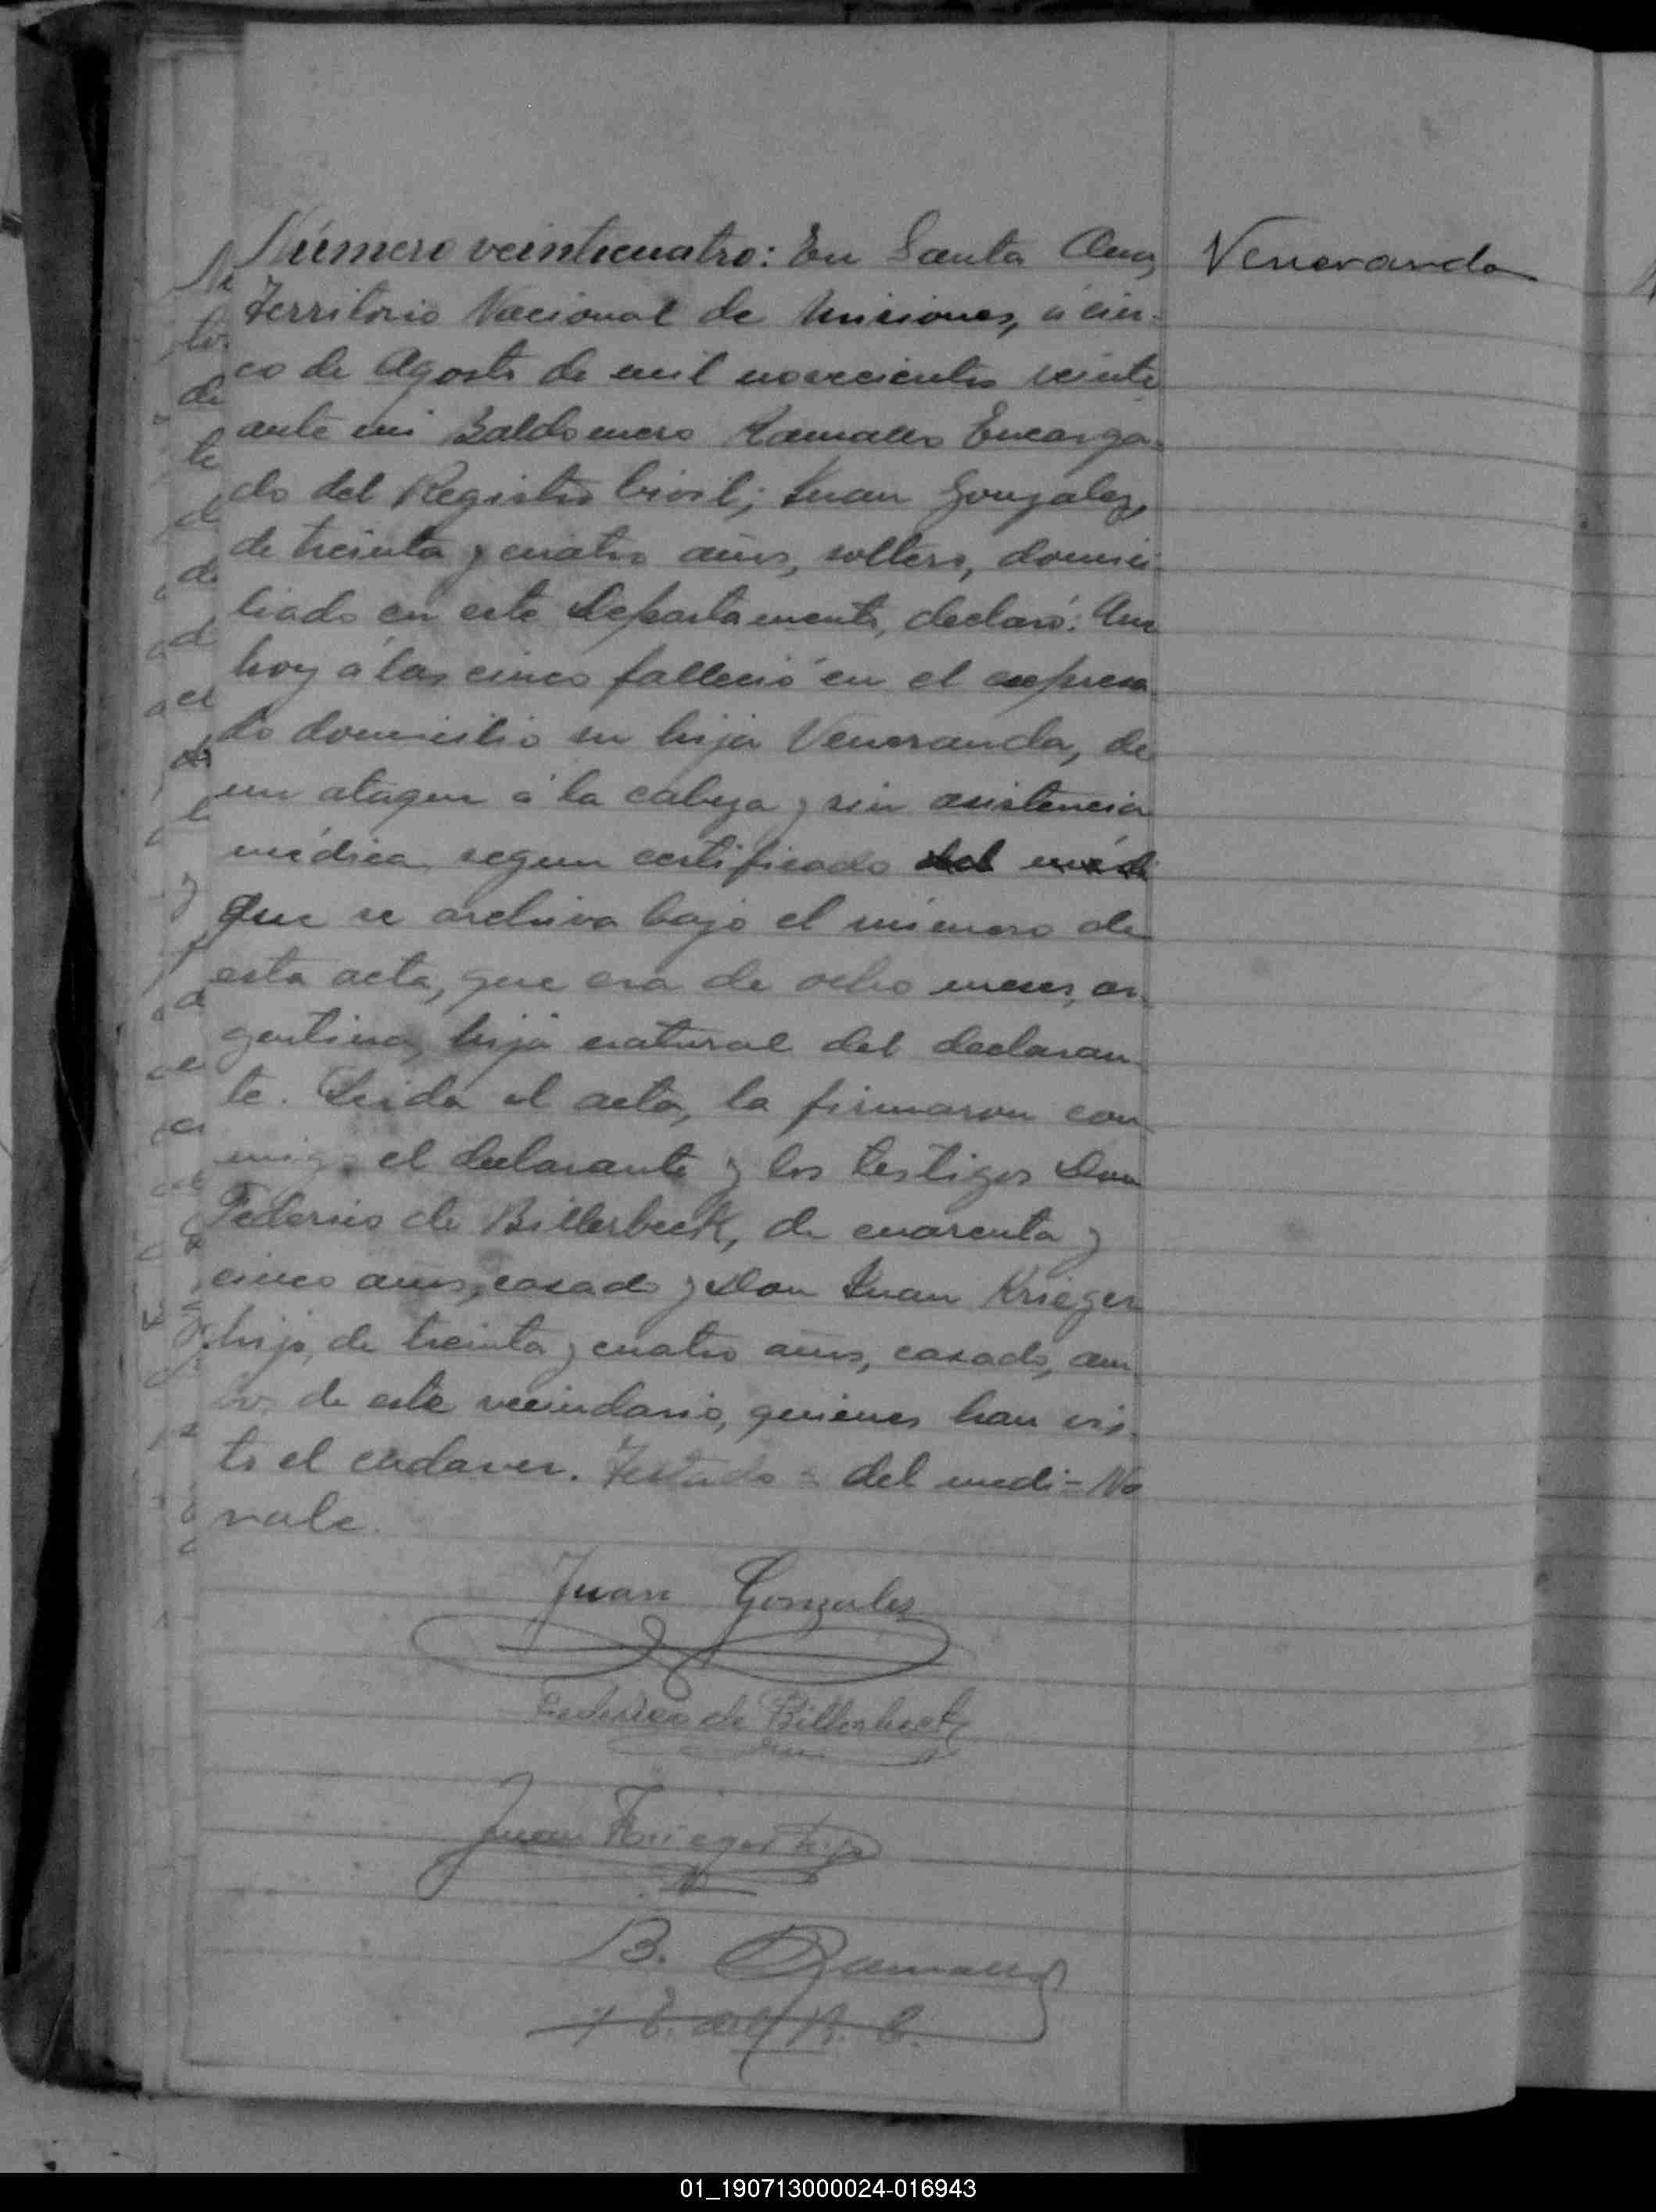 Número veinticuatro: En Santa Ana,
Veneranda
Territorio Nacional de Misiones, á cin-
co de Agosto de mil novecientos veinte
ante mi Baldomero Ramallo Encarga-
do del Registro Civil; Juan Gonzalez,
de treinta y cuatro años, soltero, domici-
liado en este Departamento, declaró: Que
hoy á las cinco falleció en el expresa-
do domicilio su hija Veneranda, de
un ataque á la cabeza y sin asistencia
médica, segun certificado del médi
que se archiva bajo el número de
esta acta, que era de ocho meses, ar-
gentina, hija natural del declaran-
te. Leida el acta, la firmaron con-
migo el declarante y los testigos Don
Federico de Billerbeck, de cuarenta y
cinco años, casado y Don Juan Krieger
hijo, de treinta y cuatro años, casado, am-
bos de este vecindario, quienes han vis-
to el cadaver. Testado = del medi = No
vale.
Juan Gonzales
Federico de Billerbeck
Juan Krieger hijo
B. Ramallo
E. del R. C.
01_190713000024-016943